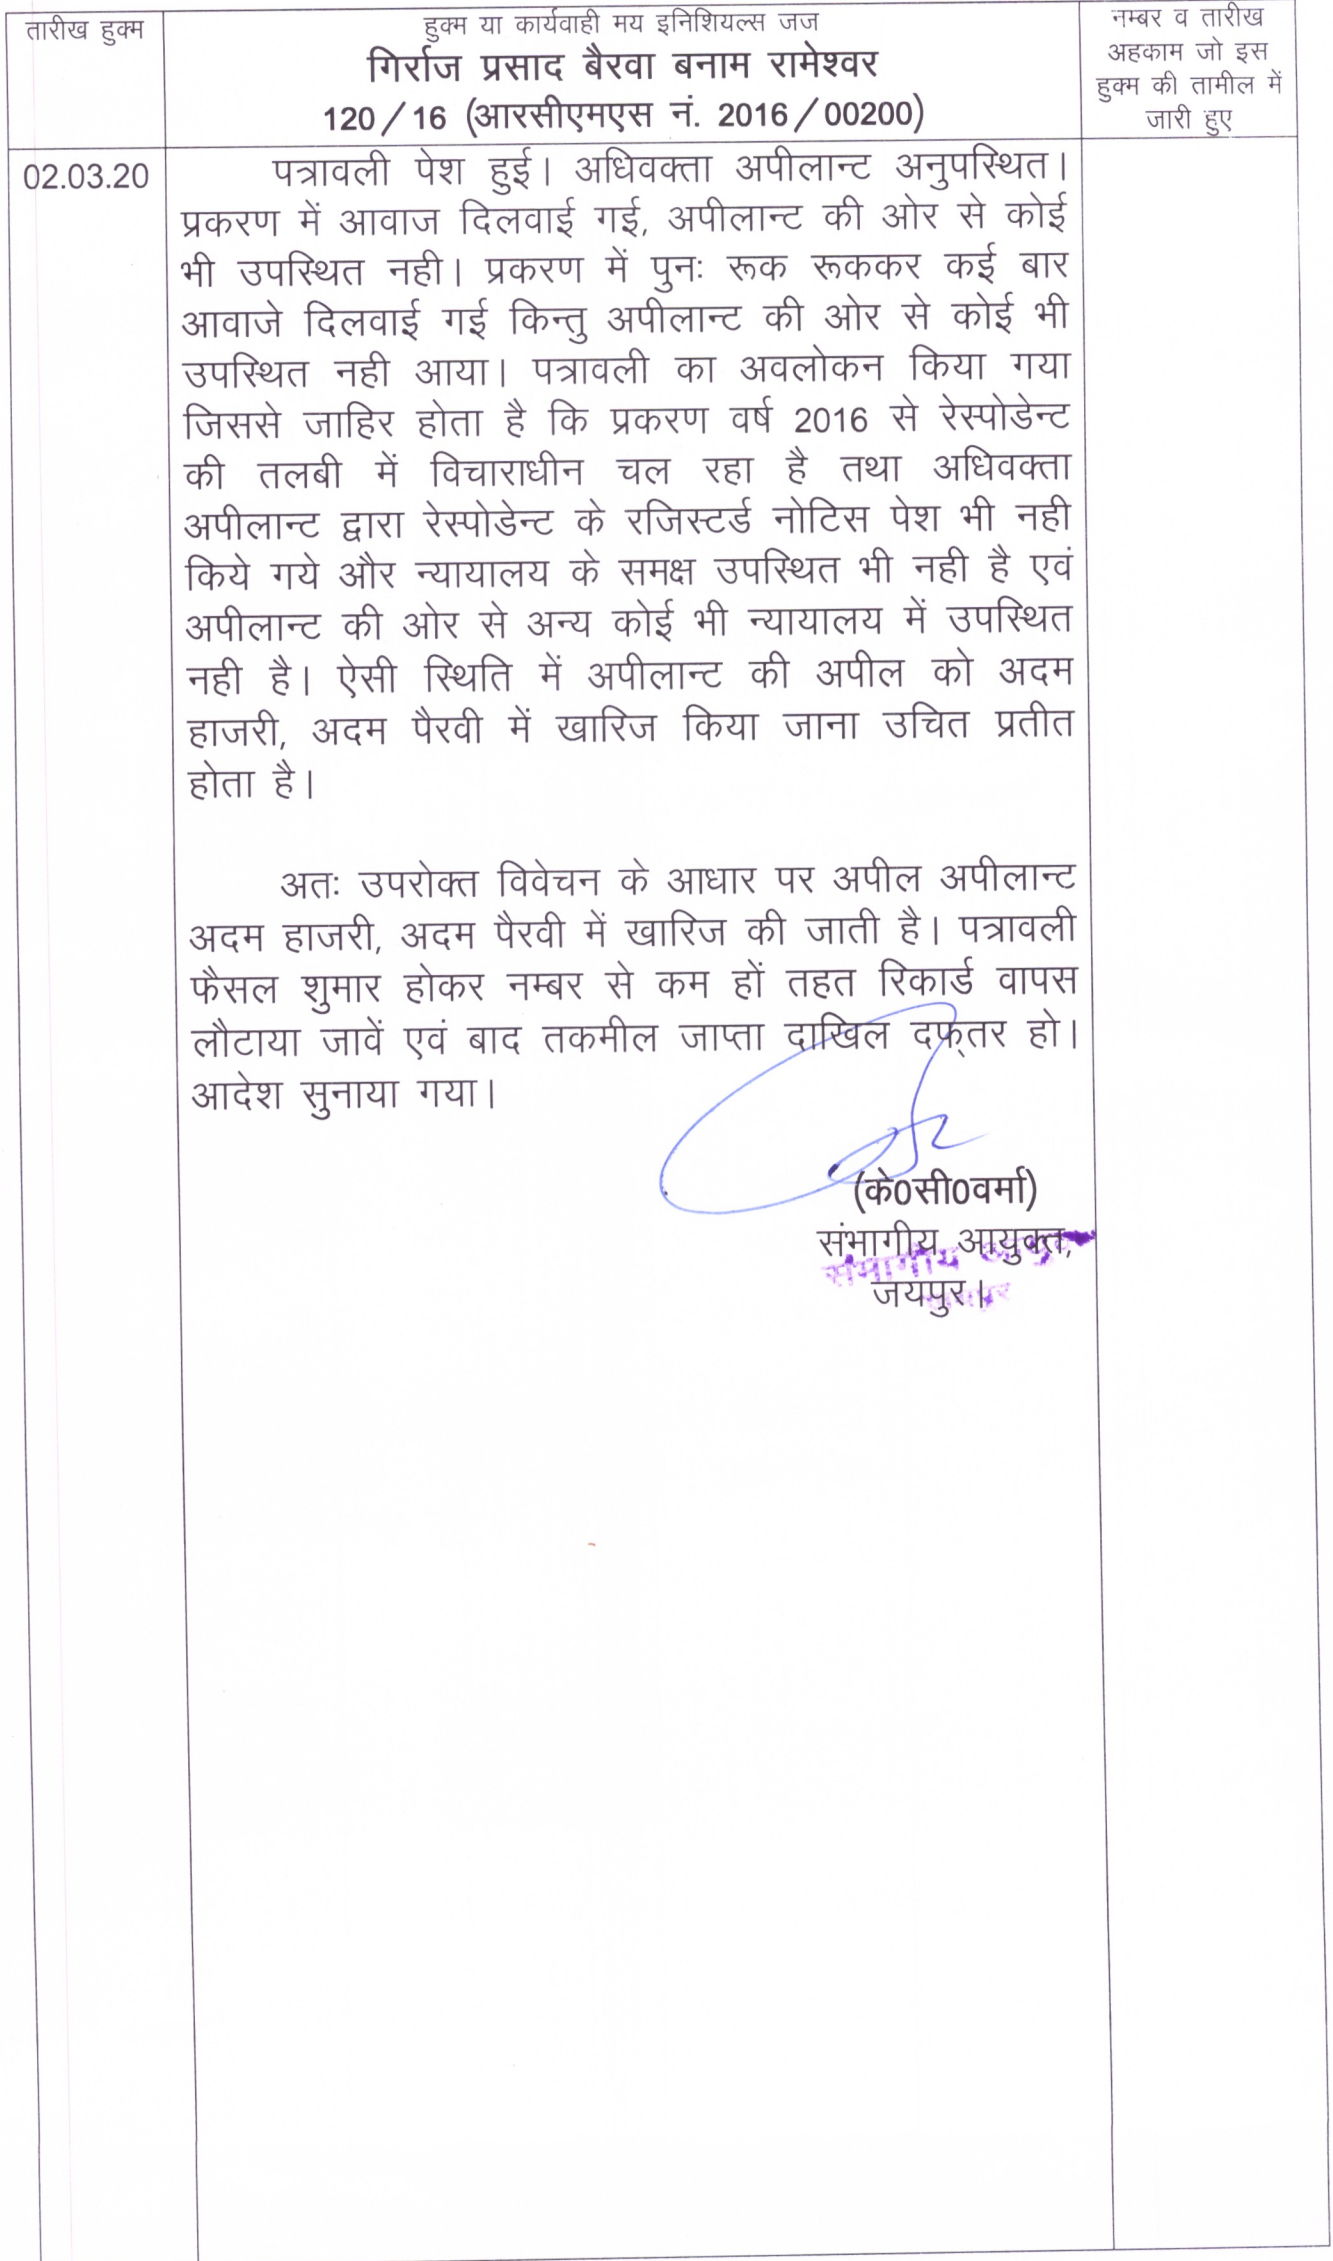 तारीख हुक्म
हुक्म या कार्यवाही मय इनिशियल्स जज
गिर्राज प्रसाद बैरवा बनाम रामेश्वर
120/16 (आरसीएमएस नं. 2016/00200)
नम्बर व तारीख
अहकाम जो इस
हुक्म की तामील में
जारी हुए
02.03.20
पत्रावली पेश हुई। अधिवक्ता अपीलान्ट अनुपस्थित।
प्रकरण में आवाज दिलवाई गई, अपीलान्ट की ओर से कोई
भी उपस्थित नही। प्रकरण में पुनः रूक रूककर कई बार
आवाजे दिलवाई गई किन्तु अपीलान्ट की ओर से कोई भी
उपस्थित नही आया। पत्रावली का अवलोकन किया गया
जिससे जाहिर होता है कि प्रकरण वर्ष 2016 से रेस्पोडेन्ट
की तलबी में विचाराधीन चल रहा है तथा अधिवक्ता
अपीलान्ट द्वारा रेस्पोडेन्ट के रजिस्टर्ड नोटिस पेश भी नही
किये गये और न्यायालय के समक्ष उपस्थित भी नही है एवं
अपीलान्ट की ओर से अन्य कोई भी न्यायालय में उपस्थित
नही है। ऐसी स्थिति में अपीलान्ट की अपील को अदम
हाजरी, अदम पैरवी में खारिज किया जाना उचित प्रतीत
होता है।
अतः उपरोक्त विवेचन के आधार पर अपील अपीलान्ट
अदम हाजरी, अदम पैरवी में खारिज की जाती है। पत्रावली
फैसल शुमार होकर नम्बर से कम हों तहत रिकार्ड वापस
लौटाया जावें एवं बाद तकमील जाप्ता दाखिल दफ्तर हो।
आदेश सुनाया गया।
(के0सी0वर्मा)
संभागीय आयुक्त,
संभागीय
जयपुर।